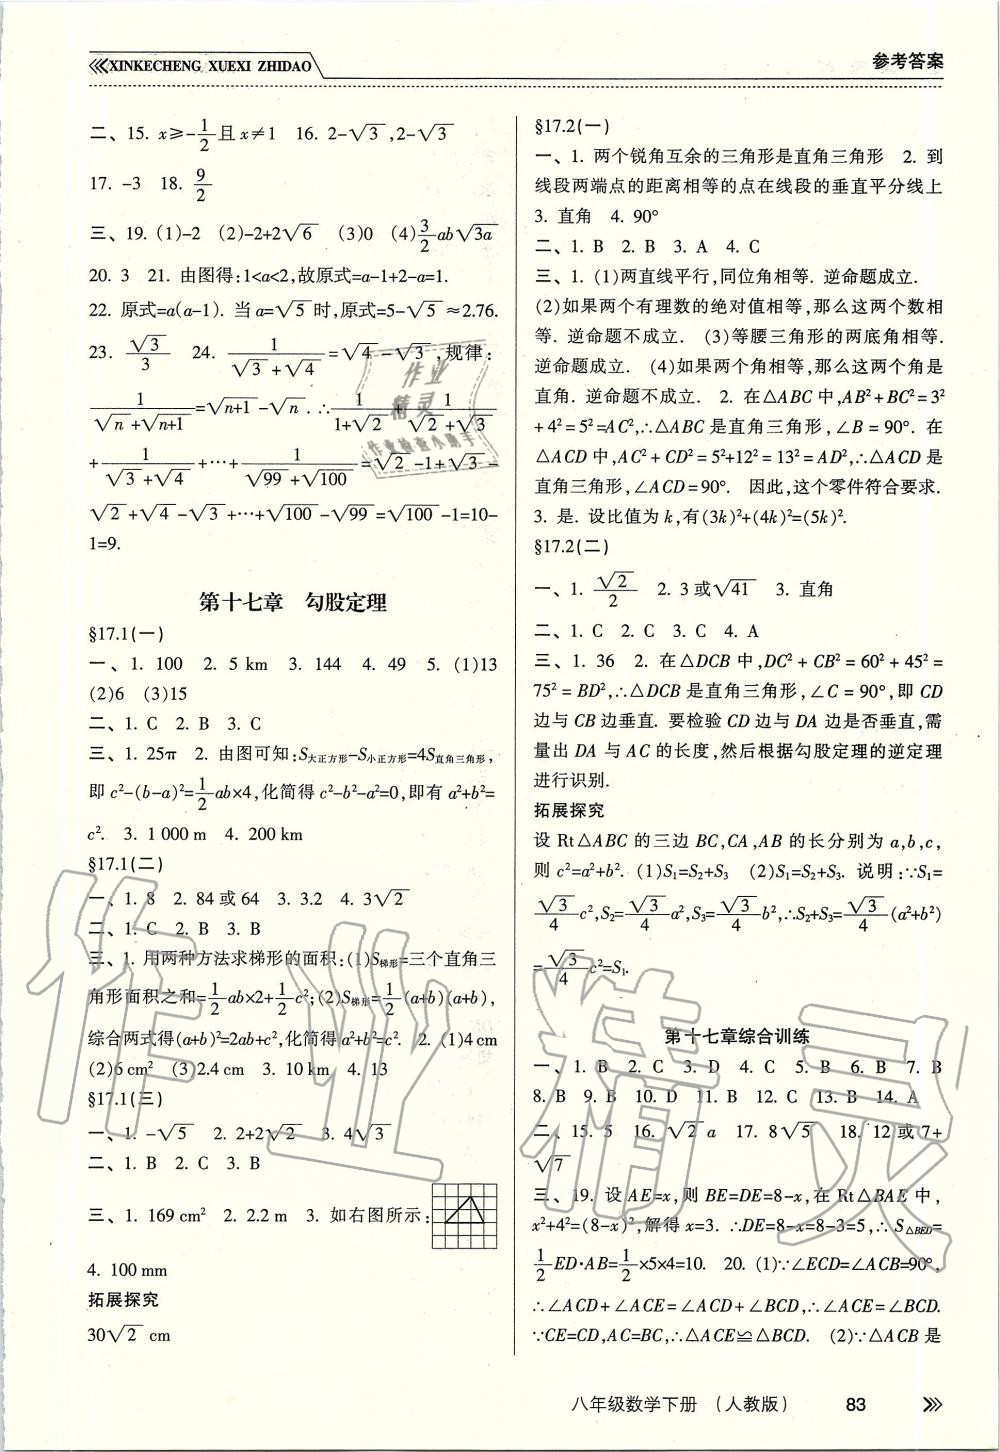 XINKECHENG XUEXI ZHIDAO
参考答案
二、15. x≥-1/2且x≠1 16. 2-√3,2-√3
17. -3 18. 9/2
三、19. (1)-2 (2)-2+2√6 (3)0 (4)3/2ab√3a
20. 3 21. 由图得:1<a<2,故原式=a-1+2-a=1.
22. 原式=a(a-1). 当a=√5时,原式=5-√5≈2.76.
23. √3/3 24. 1/(√3+√4)=√4-√3,规律:
1/(√n+√n+1)=√n+1-√n.∴1/(1+√2)+1/(√2+√3)
+1/(√3+√4)+…+1/(√99+√100)=√2-1+√3-
√2+√4-√3+…+√100-√99=√100-1=10-
1=9.
第十七章 勾股定理
§17.1(一)
一、1. 100 2. 5 km 3. 144 4. 49 5. (1)13
(2)6 (3)15
二、1. C 2. B 3. C
三、1. 25π 2. 由图可知:S大正方形-S小正方形=4S直角三角形,
即c²-(b-a)²=1/2ab×4,化简得c²-b²-a²=0,即有a²+b²=
c². 3. 1 000 m 4. 200 km
§17.1(二)
一、1. 8 2. 84或64 3. 3.2 4. 3√2
二、1. C 2. B 3. B
三、1. 用两种方法求梯形的面积:(1)S梯形=三个直角三
角形面积之和=1/2ab×2+1/2c²;(2)S梯形=1/2(a+b)(a+b),
综合两式得(a+b)²=2ab+c²,化简得a²+b²=c². 2. (1)4 cm
(2)6 cm² (3)2.4 cm 3. 10 km 4. 13
§17.1(三)
一、1. -√5 2. 2+2√2 3. 4√3
二、1. B 2. C 3. B
三、1. 169 cm² 2. 2.2 m 3. 如右图所示:
4. 100 mm
拓展探究
30√2 cm
§17.2(一)
一、1. 两个锐角互余的三角形是直角三角形 2. 到
线段两端点的距离相等的点在线段的垂直平分线上
3. 直角 4. 90°
二、1. B 2. B 3. A 4. C
三、1. (1)两直线平行,同位角相等. 逆命题成立.
(2)如果两个有理数的绝对值相等,那么这两个数相
等. 逆命题不成立. (3)等腰三角形的两底角相等.
逆命题成立. (4)如果两个角相等,那么这两个角是
直角. 逆命题不成立. 2. 在△ABC中,AB²+BC²=3²
+4²=5²=AC²,∴△ABC是直角三角形,∠B=90°. 在
△ACD中,AC²+CD²=5²+12²=13²=AD²,∴△ACD是
直角三角形,∠ACD=90°. 因此,这个零件符合要求.
3. 是. 设比值为k,有(3k)²+(4k)²=(5k)².
§17.2(二)
一、1. √2/2 2. 3或√41 3. 直角
二、1. C 2. C 3. C 4. A
三、1. 36 2. 在△DCB中,DC²+CB²=60²+45²=
75²=BD²,∴△DCB是直角三角形,∠C=90°,即CD
边与CB边垂直. 要检验CD边与DA边是否垂直,需
量出DA与AC的长度,然后根据勾股定理的逆定理
进行识别.
拓展探究
设Rt△ABC的三边BC,CA,AB的长分别为a,b,c,
则c²=a²+b². (1)S₁=S₂+S₃ (2)S₁=S₂+S₃. 说明:∵S₁=
√3/4c²,S₂=√3/4a²,S₃=√3/4b²,∴S₂+S₃=√3/4(a²+b²)
=√3/4c²=S₁.
第十七章综合训练
一、1. B 2. C 3. D 4. C 5. B 6. B 7. B
8. B 9. B 10. D 11. B 12. C 13. B 14. A
二、15. 5 16. √2a 17. 8√5 18. 12或7+
√7
三、19. 设AE=x,则BE=DE=8-x,在Rt△BAE中,
x²+4²=(8-x)²,解得x=3. ∴DE=8-x=8-3=5,∴S△BED=
1/2ED·AB=1/2×5×4=10. 20. (1)∵∠ECD=∠ACB=90°,
∴∠ACD+∠ACE=∠ACD+∠BCD,∴∠ACE=∠BCD.
∵CE=CD,AC=BC,∴△ACE≌△BCD. (2)∵△ACB是
八年级数学下册 (人教版) 83
作业精灵
作业
精灵
作业检查小助手